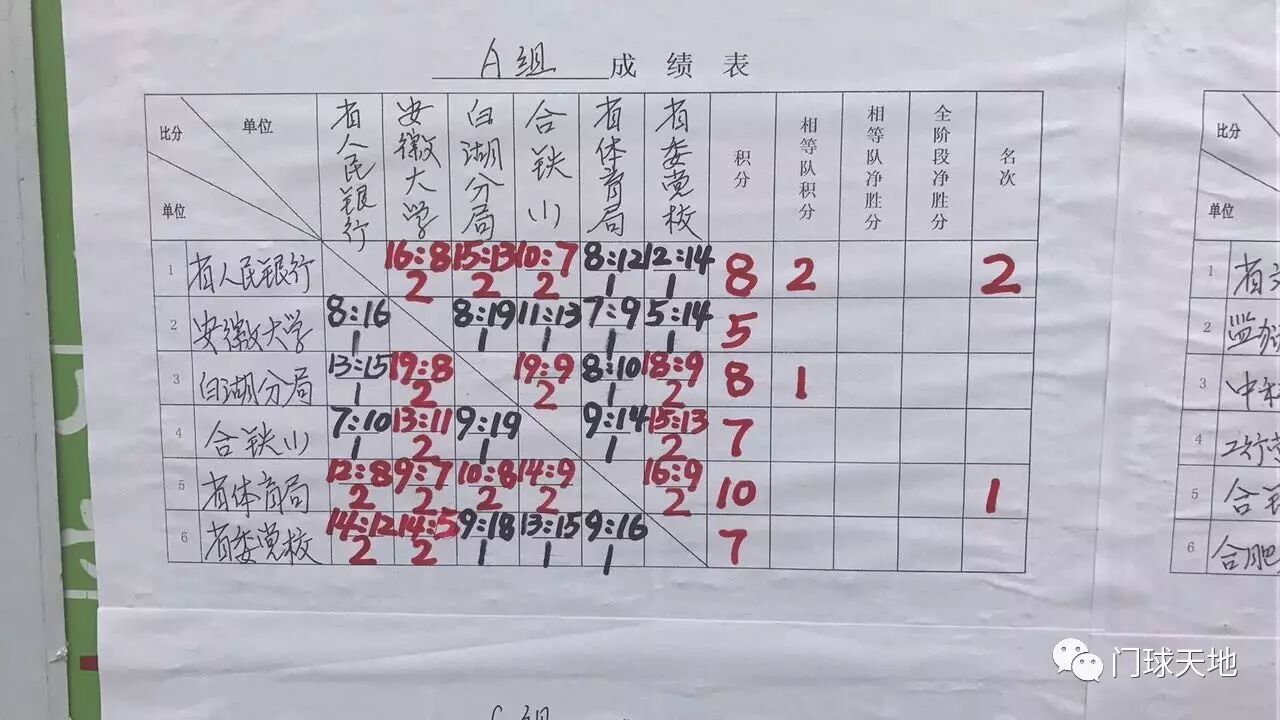 A组 成绩表
比分 单位 单位 省人民银行 安徽大学 白湖分局 合铁小 省体育局 省委党校 积分 相等队积分 相等队净胜分 全阶段净胜分 名次
1 省人民银行 16:8 2 15:13 2 10:7 2 8:12 1 12:14 1 8 2 2
2 安徽大学 8:16 1 8:19 1 11:13 1 7:9 1 5:14 1 5
3 白湖分局 13:15 1 19:8 2 19:9 2 8:10 1 18:9 2 8 1
4 合铁小 7:10 1 13:11 2 9:19 1 9:14 1 15:13 2 7
5 省体育局 12:8 2 9:7 2 10:8 2 14:9 2 16:9 2 10 1
6 省委党校 14:12 2 14:5 2 9:18 1 13:15 1 9:16 1 7
比分
单位
1 省
2
3 中
4 工行
5 合
6 合肥
门球天地
组